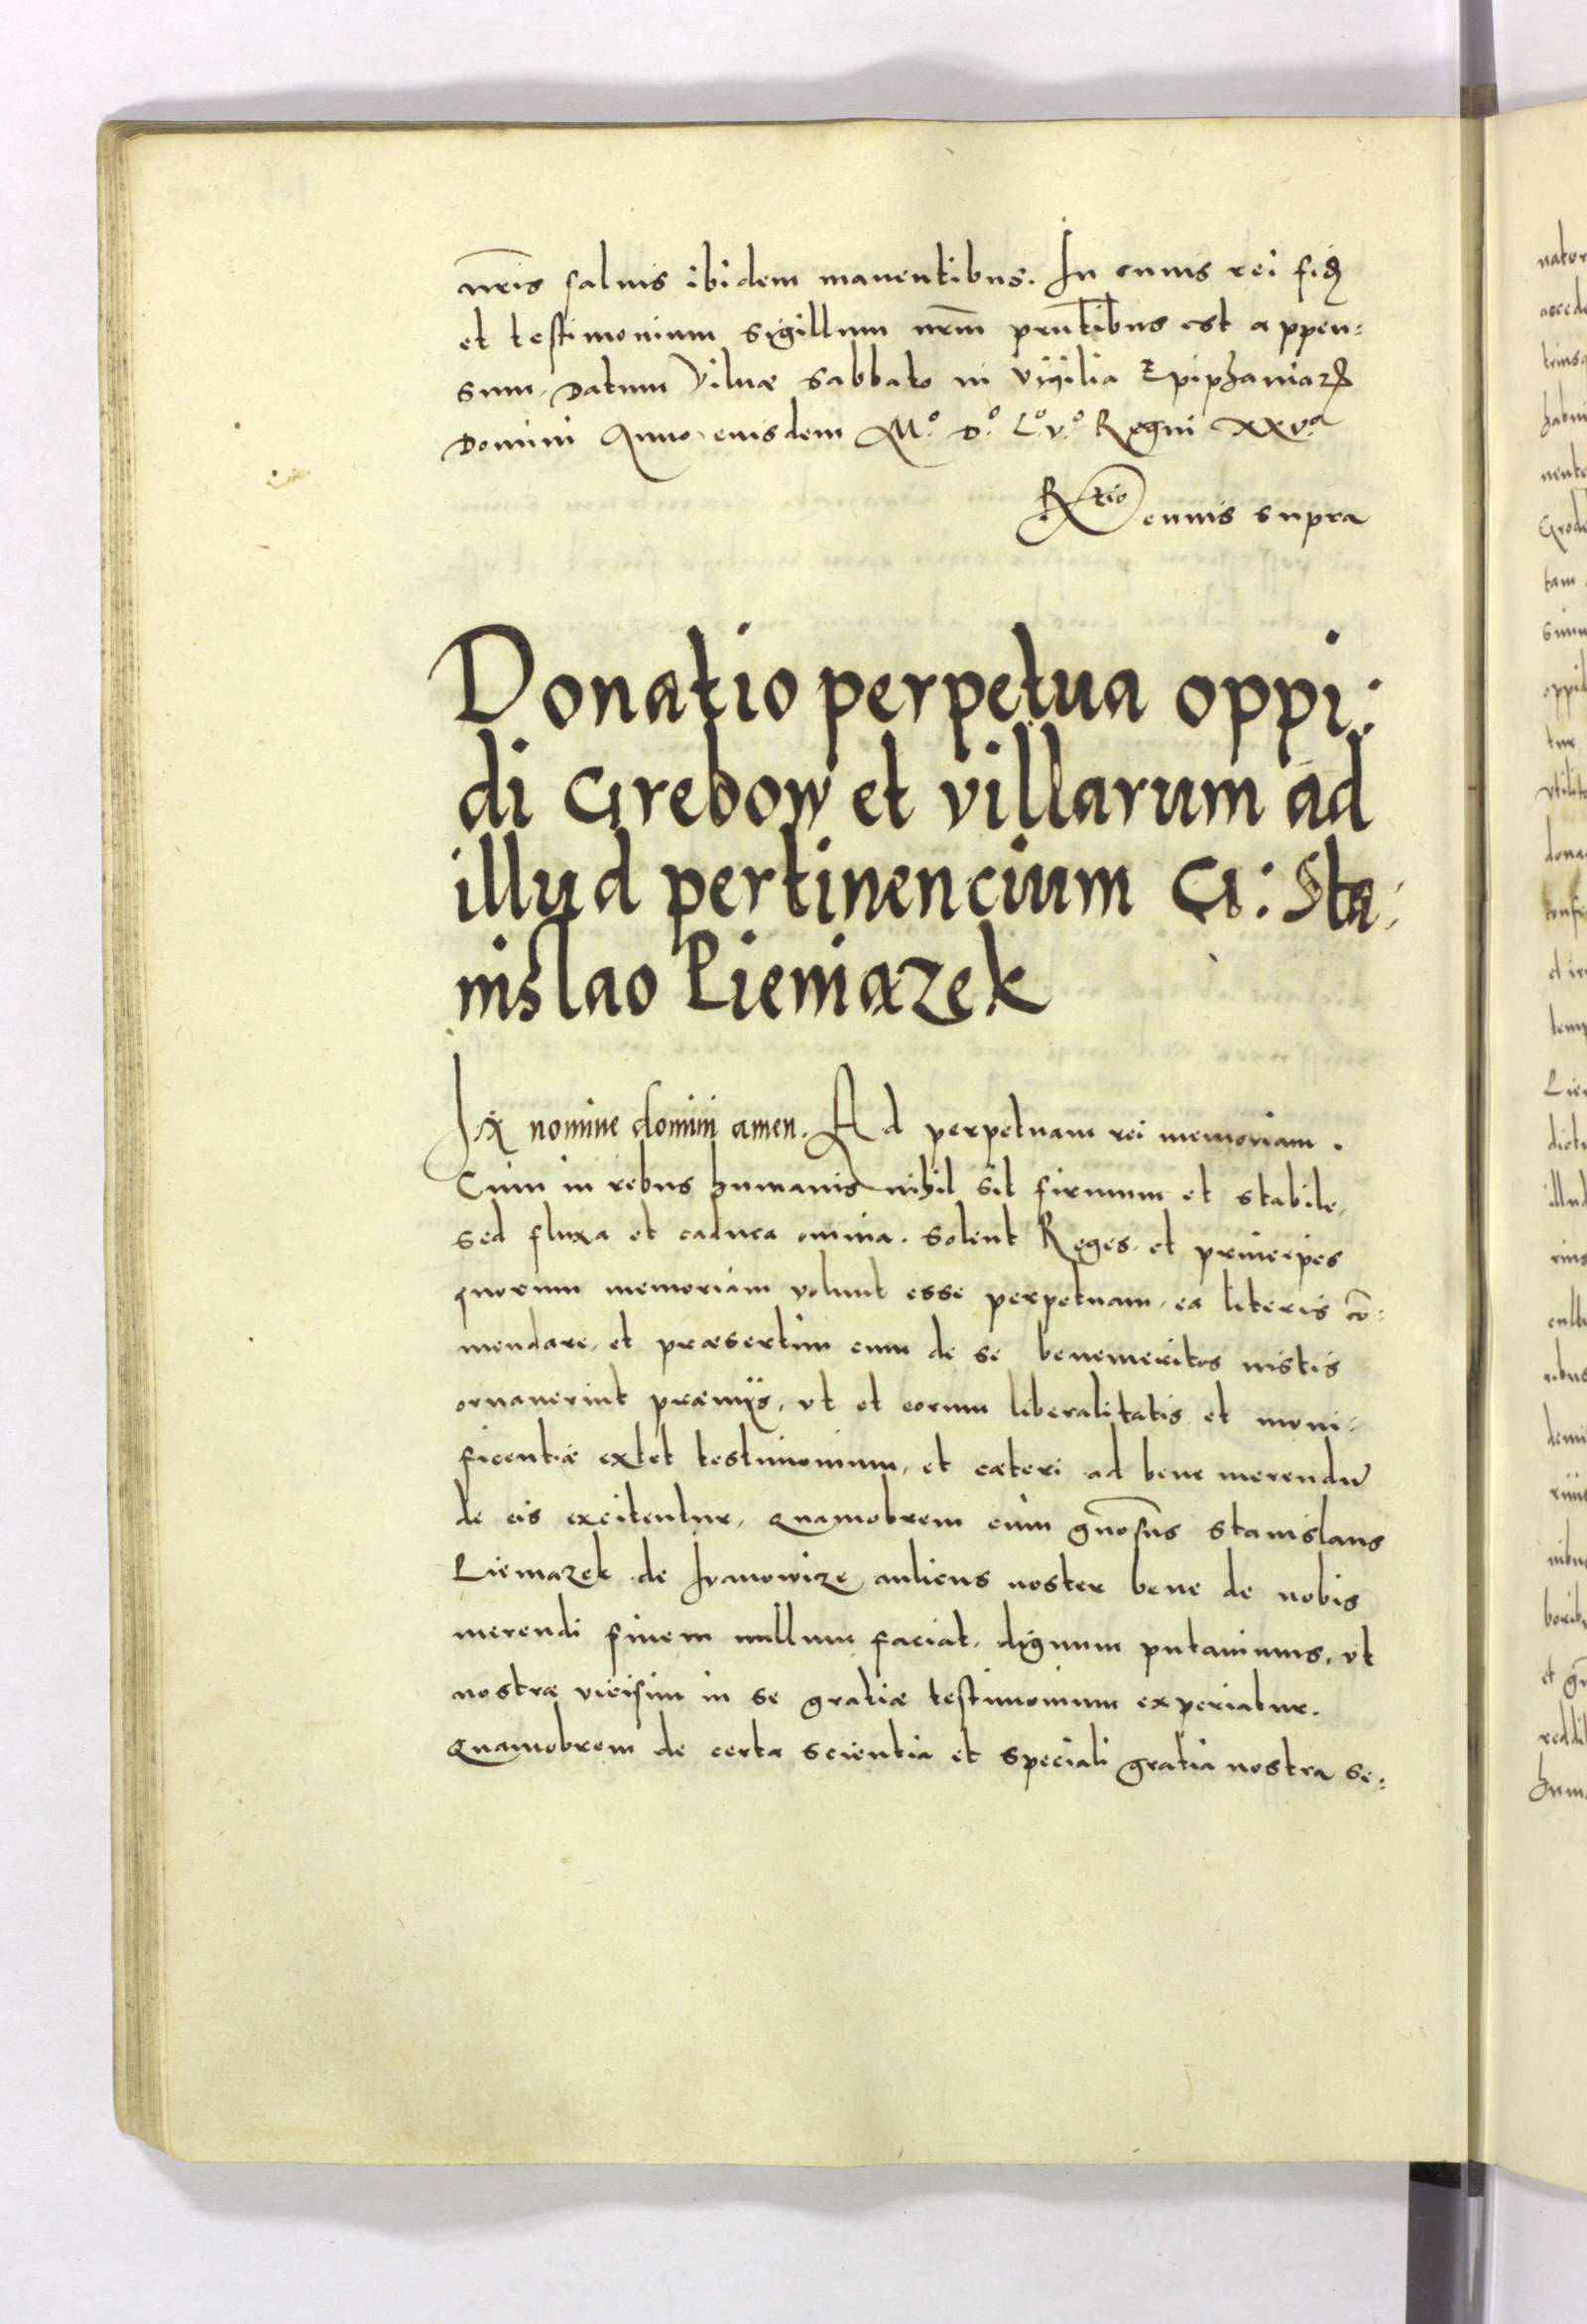 nr̃is saluis ibidem manentibus. In cuius rei fidẽ
et testimonium sigillum nrm̃ prñtibus est appen:
sum. Datum Vilnæ sabbato in Vigilia Epiphaniarꝝ
Domini Anno eiusdem Mº. Dº. Lº. vº. Regni xxvº
R̃tio cuius supra
Donatio perpetua oppi:
di Grebow et villarum ad
illud pertinencium G: Sta:
nislao Lieniazek
In nomine domini amen. Ad perpetuam rei memoriam.
Cum in rebus humanis nihil sit firmum et stabile,
sed fluxa et caduca omnia. solent Reges et principes
quorum memoriam volunt esse perpetuam, ea literis cõ:
mendare, et præsertim cum de se benemeritos iustis
ornauerint præmijs, vt et eorum liberalitatis et muni:
ficentiæ extet testimonium, et cæteri ad bene merendũ
de eis excitentur. Quamobrem cum gñosus Stanislaus
Lieniazek de Iwanowize aulicus noster bene de nobis
merendi finem nullum faciat. dignum putauimus, vt
nostræ vicisim in se gratiæ testimonium experiatur.
Quamobrem de certa scientia et speciali gratia nostra se: